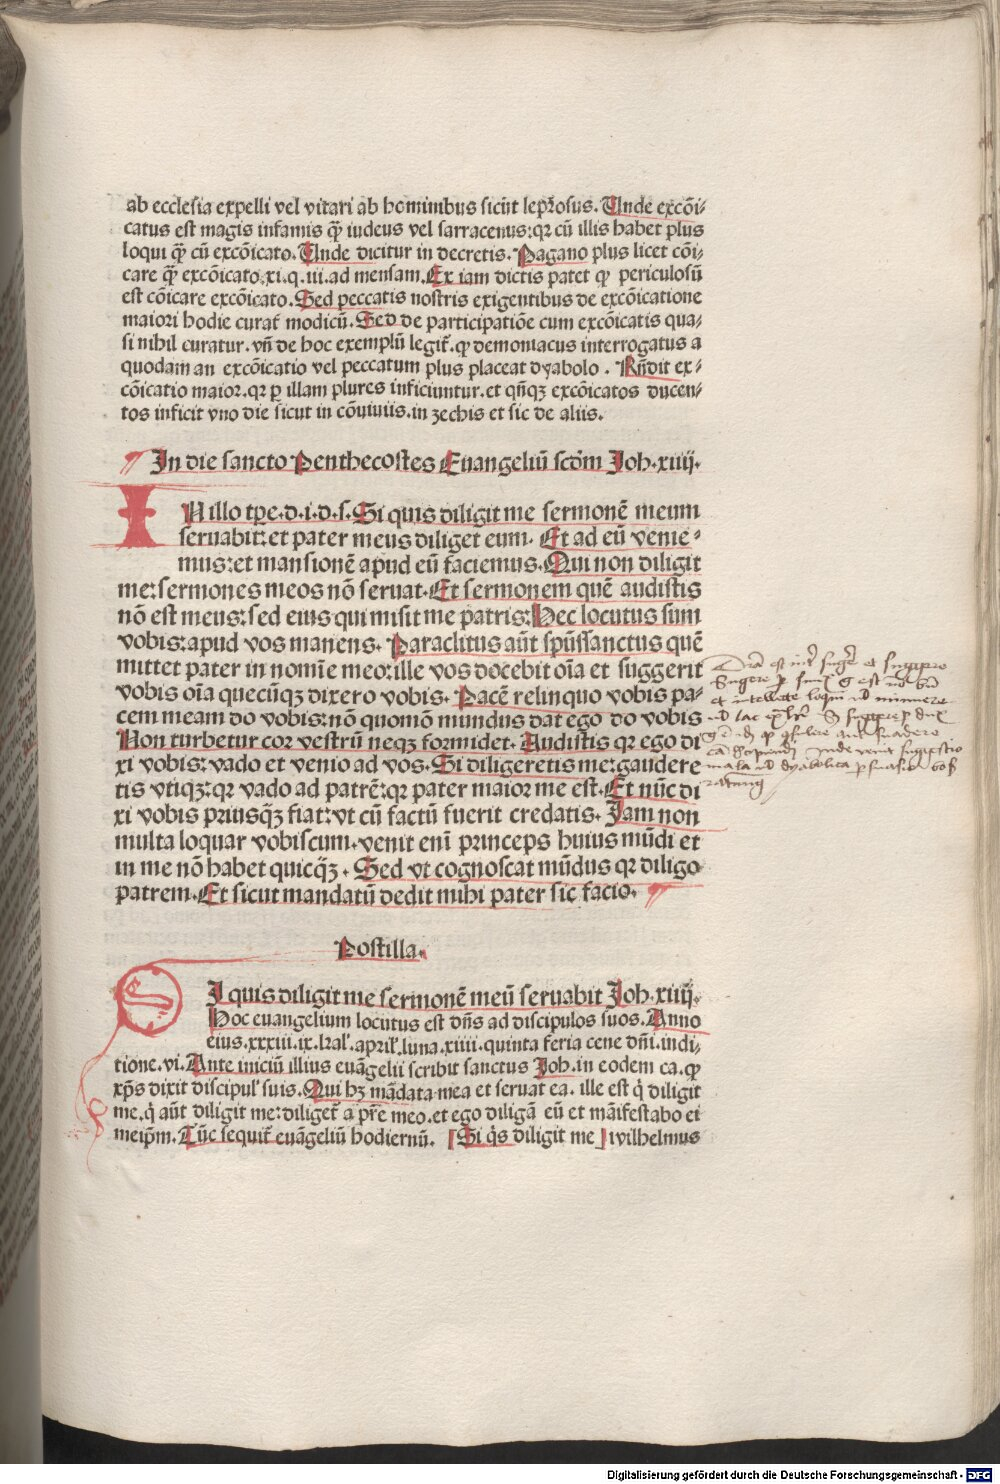 ab ecclesia expelli vel vitari ab hominibus sicut leprosus. Unde excōi⸗
catus est magis infamis q̄ȝ iudeus vel sarracenus: qꝛ cū illis habet plus
loqui q̄ȝ cū excōicato. Unde dicitur in decretis. Pagano plus licet cōi⸗
care q̄ȝ excōicato. xi. q. iii. ad mensam. Ex iam dictis patet ꝙ periculosū
est cōicare excōicato. Sed peccatis nostris exigentibus de excōicatione
maiori hodie curat᷑ modicū. Sed de participatiōe cum excōicatis qua⸗
si nihil curatur. vn̄ de hoc exemplū legit᷑. ꝙ demoniacus interrogatus a
quodam an excōicatio vel peccatum plus placeat dyabolo. Rn̄dit ex⸗
cōicatio maior. qꝛ ꝑ illam plures inficiuntur. et qn̄qȝ excōicatos ducen⸗
tos inficit vno die sicut in cōuiuiis. in zechis et sic de aliis.
¶ In die sancto Penthecostes Euangeliū scd̄m Joh. xiiij.
IN illo tꝑe. d. i. d. s. Si quis diligit me sermonē meum
seruabit: et pater meus diliget eum. Et ad eū venie⸗
mus: et mansionē apud eū faciemus. Qui non diligit
me: sermones meos nō seruat. Et sermonem quē audistis
nō est meus: sed eius qui misit me patris: Hec locutus sum
vobis: apud vos manens. Paraclitus aūt spūssanctus quē
mittet pater in nomīe meo: ille vos docebit oīa et suggerit
vobis oīa quecūqȝ dixero vobis. Pacē relinquo vobis pa⸗
cem meam do vobis: nō quomō mundus dat ego do vobis
Non turbetur cor vestrū neqȝ formidet. Audistis qꝛ ego di
xi vobis: vado et venio ad vos. Si diligeretis me: gaudere
tis vtiqȝ: qꝛ vado ad patrē: qꝛ pater maior me est. Et nūc di
xi vobis priusq̄ȝ fiat: vt cū factū fuerit credatis. Jam non
multa loquar vobiscum. venit enī princeps huius mūdi et
in me nō habet quicq̄ȝ. Sed vt cognoscat mūdus qꝛ diligo
patrem. Et sicut mandatū dedit mihi pater sic facio.
Postilla.
SI quis diligit me sermonē meū seruabit Joh. xiiij.
Hoc euangelium locutus est dn̄s ad discipulos suos. Anno
eius. xxxiii. ix. kal̄. april̄. luna. xiiii. quinta feria cene dn̄i. indi⸗
tione. vi. Ante iniciū illius euāgelii scribit sanctus Joh. in eodem ca. ꝙ
xp̄s dixit discipul̓ suis. Qui hȝ mādata mea et seruat ea. ille est q̇ diligit
me. q̇ aūt diligit me: diliget᷑ a pr̄e meo. et ego diligā eū et māifestabo ei
meip̄m. Tūc sequit᷑ euāgeliū hodiernū. [Si q̇s diligit me] wilhelmus
Digitalisierung gefördert durch die Deutsche Forschungsgemeinschaft - DFG